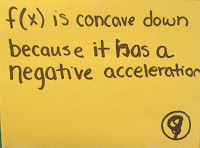 f(x) is concave down
because it has a
negative acceleration